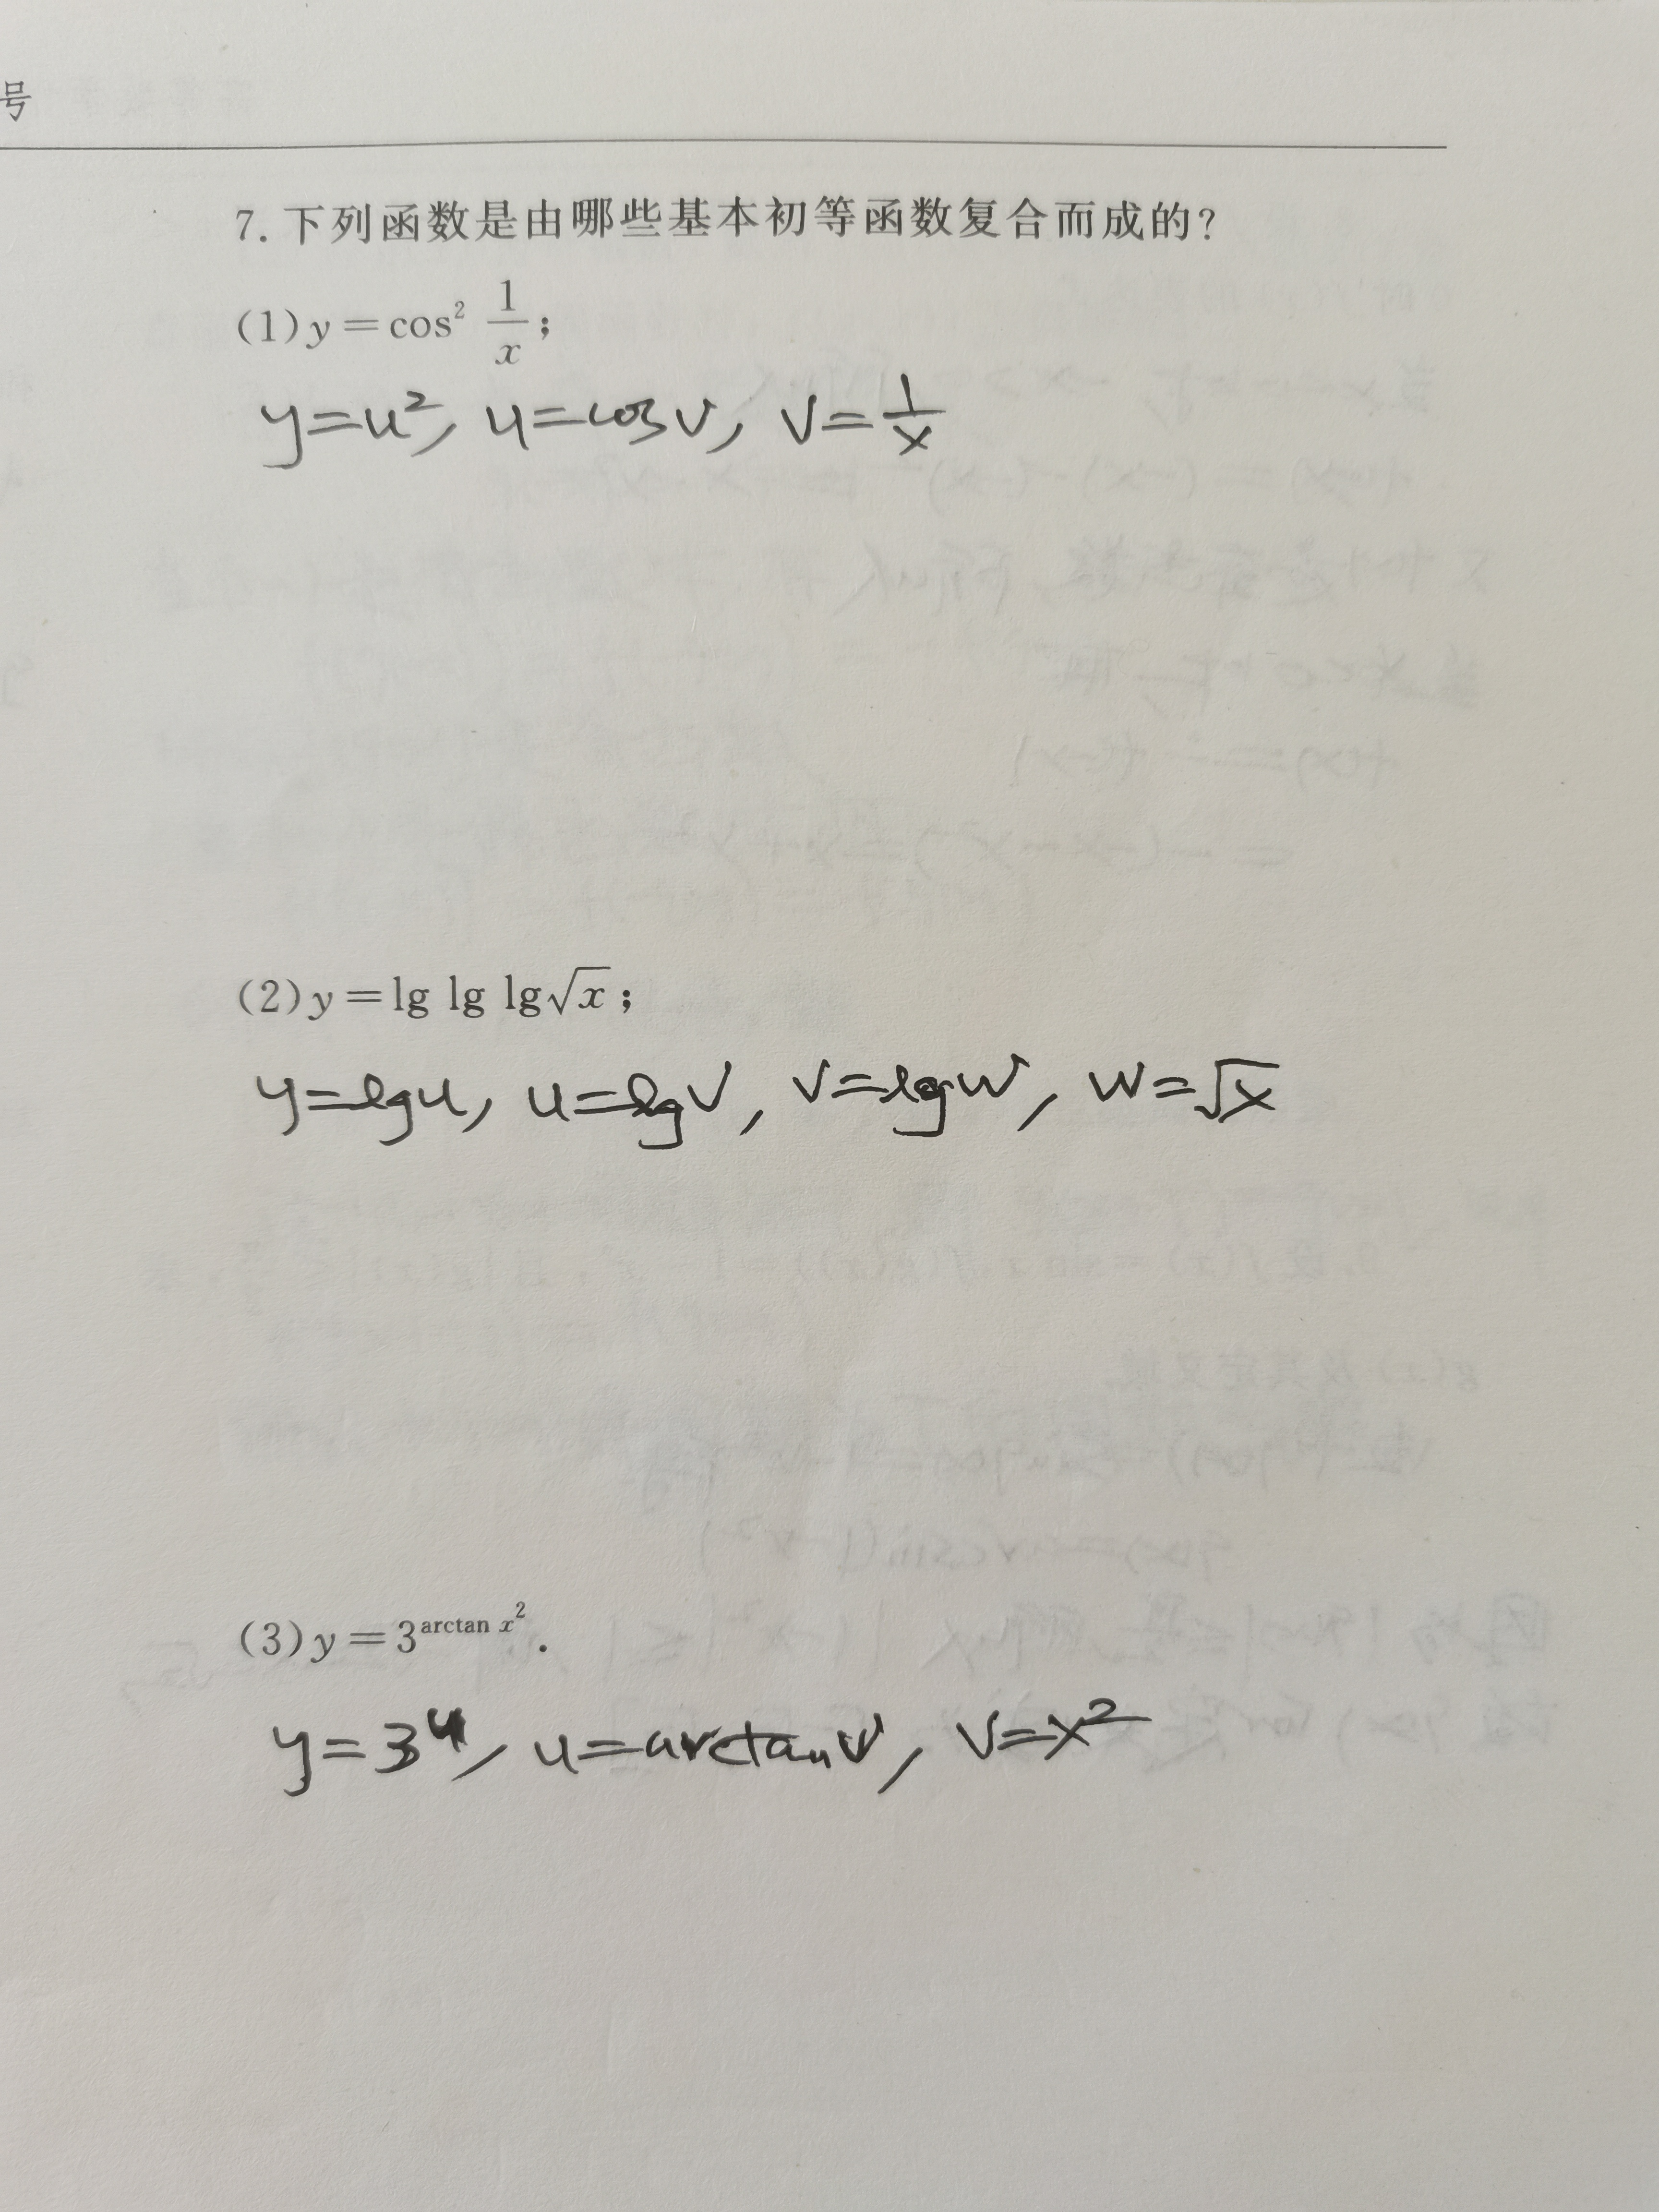 号
7. 下列函数是由哪些基本初等函数复合而成的?
(1) y = cos² 1/x ;
y=u², u=cosv, v=1/x
(2) y = lg lg lg√x ;
y=lgu, u=lgv, v=lgw, w=√x
(3) y = 3^(arctan x²) .
y=3^u, u=arctanv, v=x²